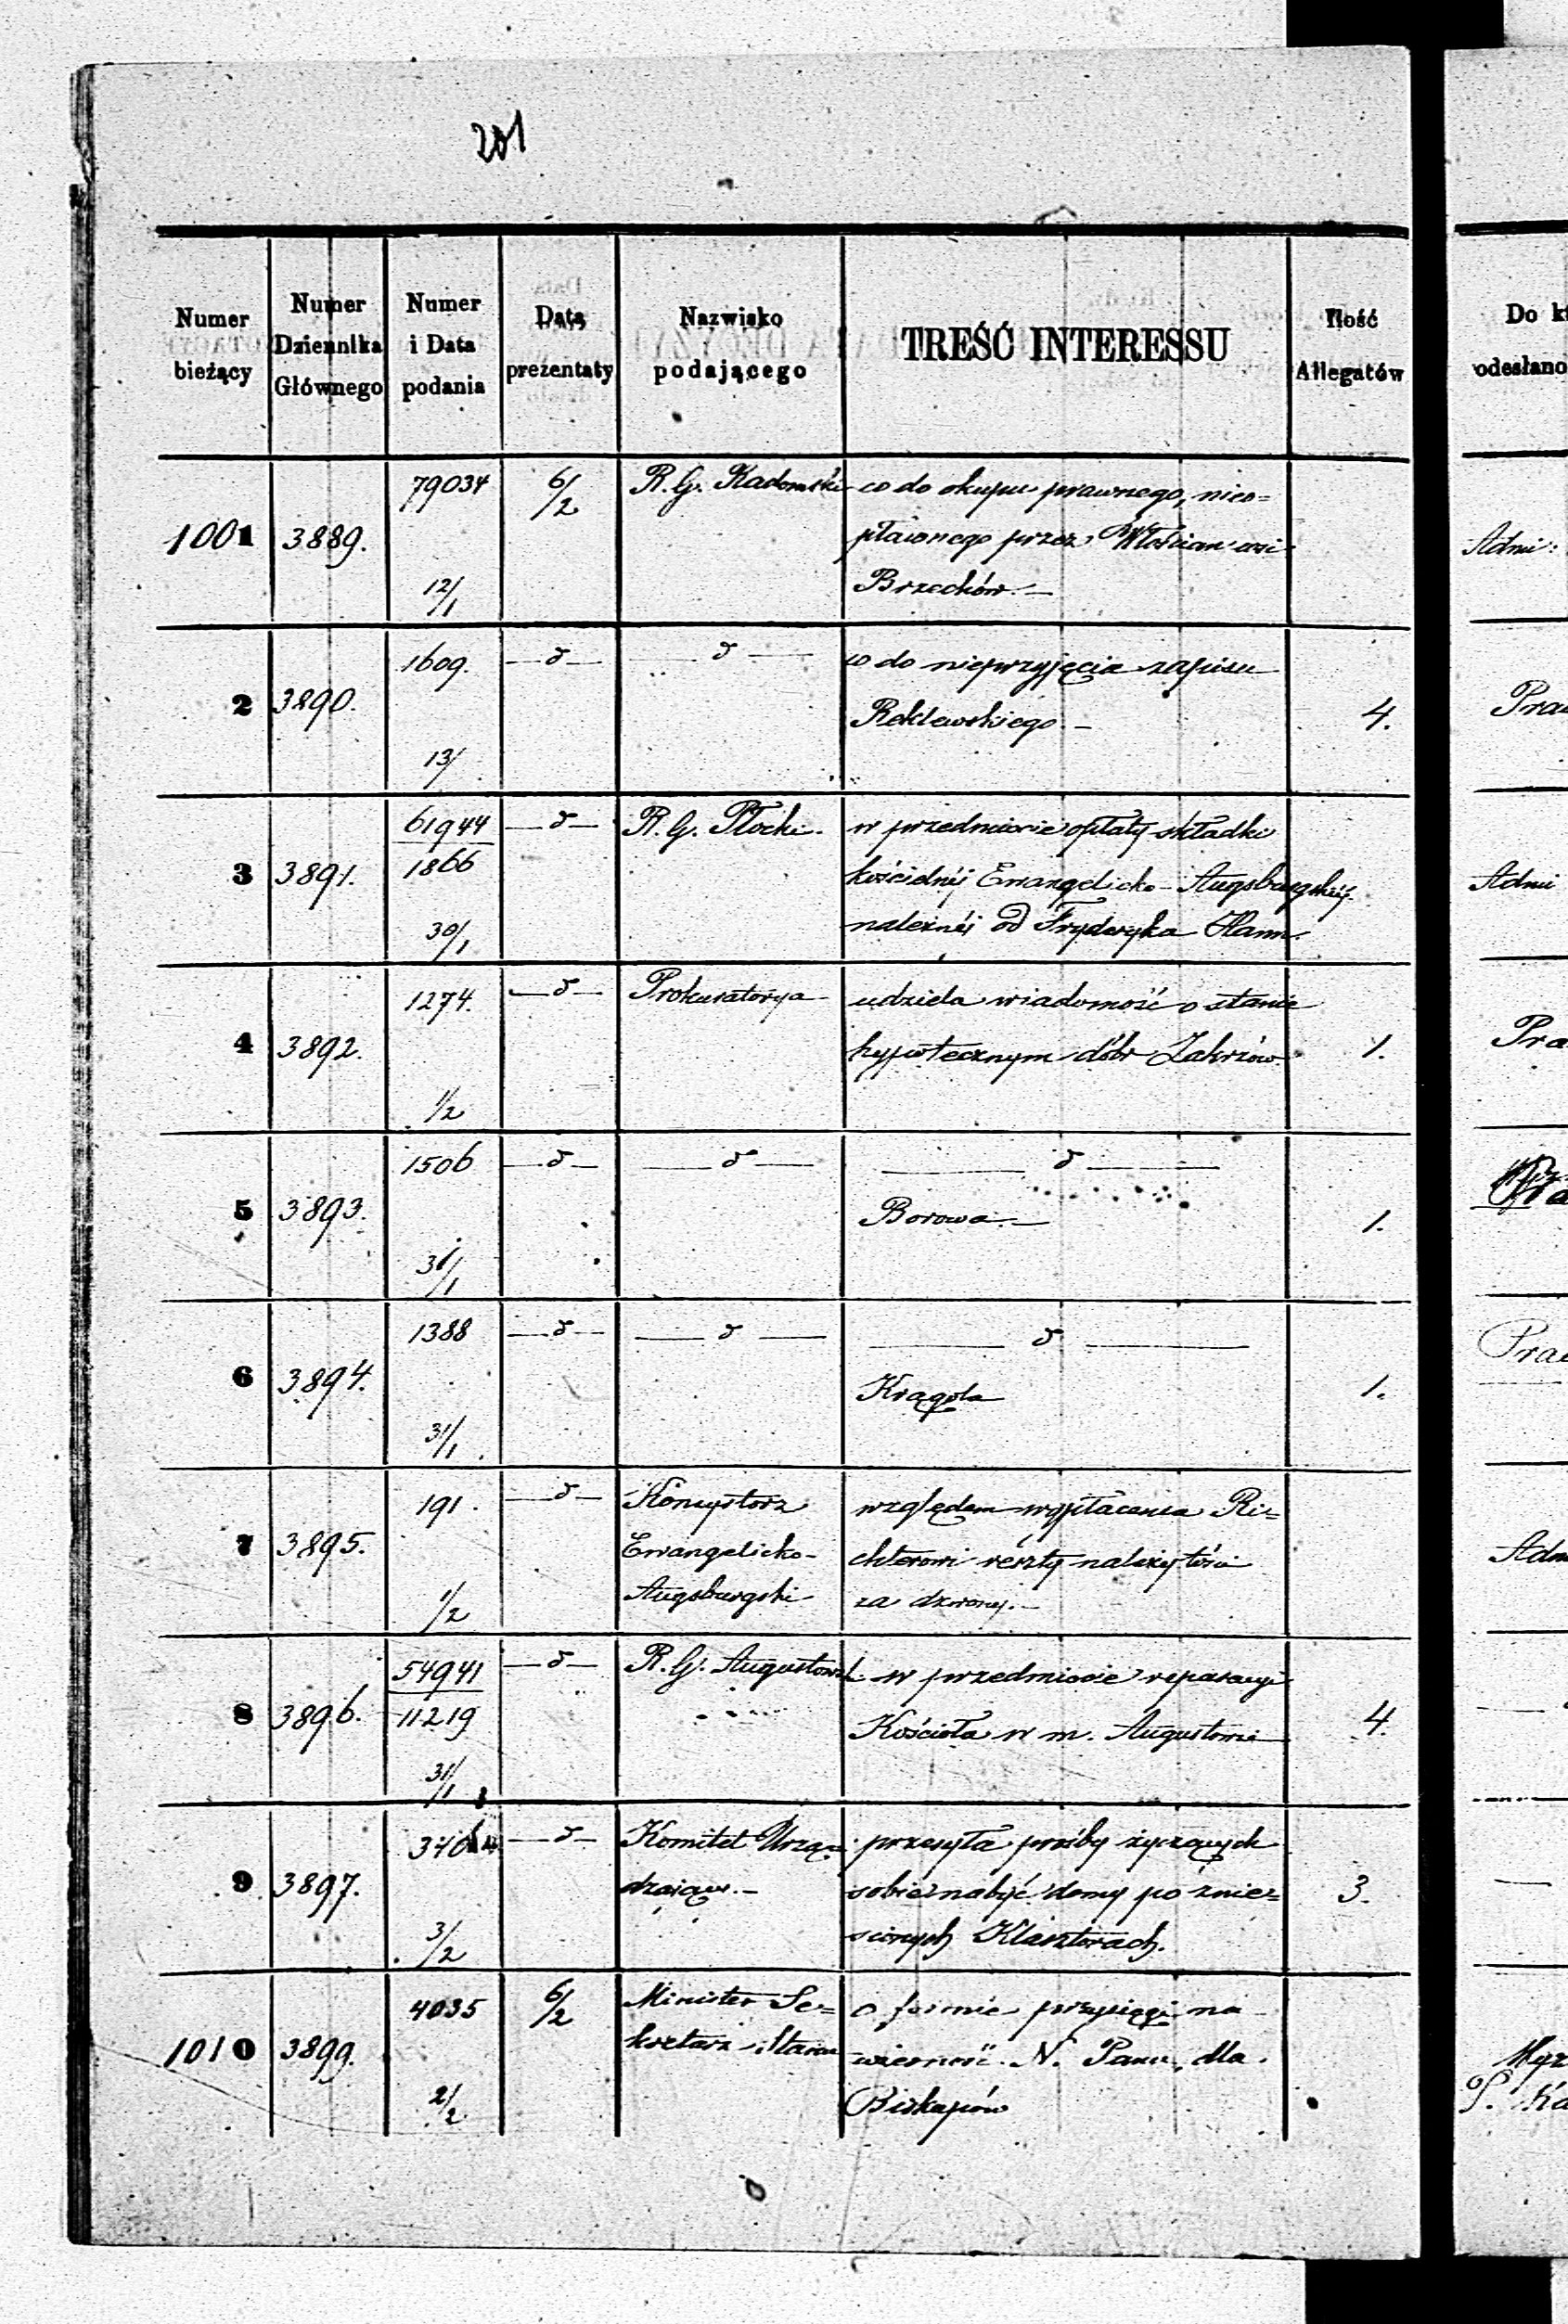 201
Numer bieżący
Numer Dziennika Głównego
Numer i Data podania
Data prezentaty
Nazwisko podającego
TREŚĆ INTERESSU
Ilość Allegatów
Do
odesłano
1001 3889. 79034 12/1 6/2 R. G. Radomski co do okupu prawnego, nieo=
płaconego przez Włościan wsi
Brzechów.—
Admi:
2 3890. 1609. 13/ —d— —d— co do nieprzyjęcia zapisu
Reklewskiego.— 4.
3 3891. 61944 1866 30/1 —d— R. G. Płocki. w przedmiocie opłaty składki
kościelnéj Ewangelicko-Augsburgskiéj
należnéj od Fryderyka Hann.
Admi
4 3892. 1274. 1/2 —d— Prokuratorya udziela wiadomość o stanie
hypotecznym dóbr Zakrzów 1.
5 3893. 1506 31/1 —d— —d— —d—
Borowa.— 1.
6 3894. 1388 31/1 —d— —d— —d—
Krągola 1.
7 3895. 191. 1/2 —d— Konsystorz względem wypłacenia Ri=
Ewangelicko- chterowi reszty należytości
Augsburgski za dzwony.—
8 3896. 54941 11219 31/1 —d— R. G. Augustowski w przedmiocie reparacyi
Kościoła w m. Augustowie 4.
9 3897. —d— 3/2 Komitet Urzą= przesyła prośby życzących
dzający.— sobie nabyć domy po znie=
sionych Klasztorach. 3.
1010 3899. 4035 2/2 6/2 Minister Se= o formie przysięgi na
kretarz Stanu wierność N. Panu, dla
Biskupów